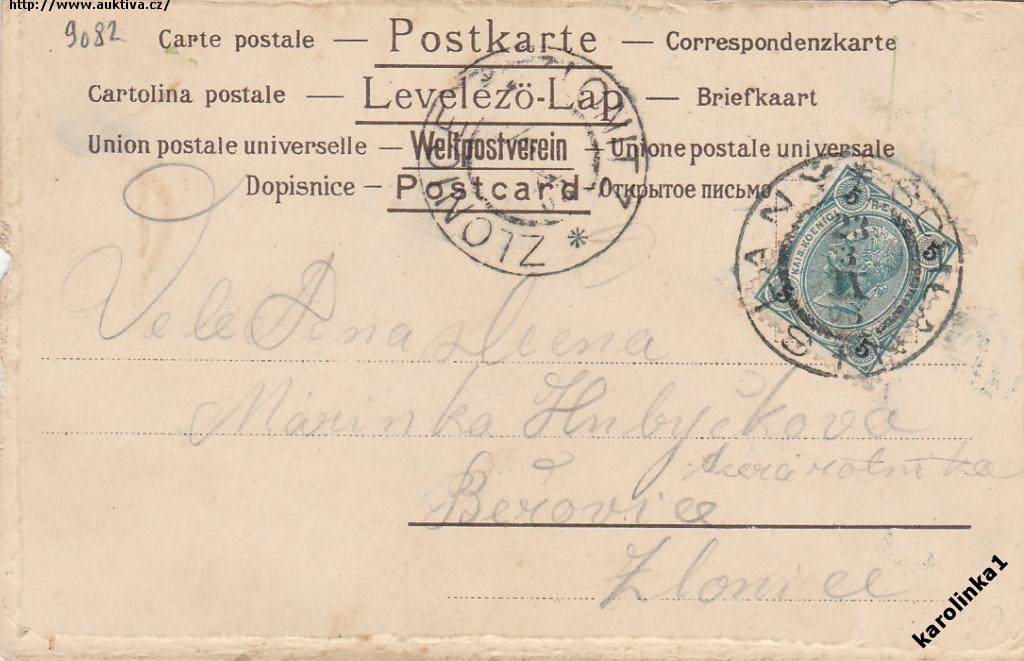 http://www.auktiva.cz/
9082
Carte postale — Postkarte — Correspondenzkarte
Cartolina postale — Levelező-Lap — Briefkaart
Union postale universelle — Weltpostverein — Unione postale universale
Dopisnice — Postcard — Открытое письмо
ZLONITZ
ZLONICE *
SLANÝ
23
3
5 5 5 5
KAIS. KOENIGL.
Velectěná slečna
Mařinka Hubyčkova
Beřovice
Zlonice
karolinka1